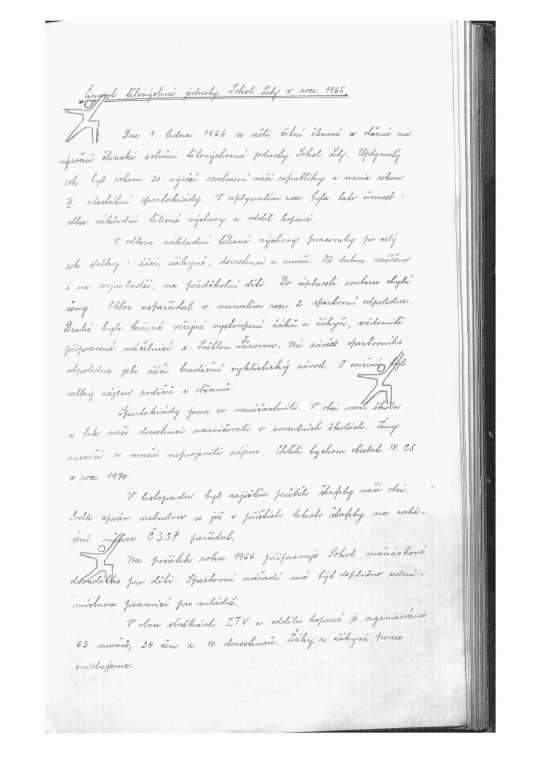 Činnost tělovýchvné jednoty Sokol Lety v roce 1965.
Dne 9. ledna 1966 se sešli četní členové a občané na
výroční členské schůzi tělovýchovné jednoty Sokol Lety. Uplynulý
rok byl rokem 20. výročí osvobození naší republiky a navíc rokem
III. celostátní spartakiády. V uplynulém roce byla tato činnost :
odbor základní tělesné výchovy a oddíl kopané.
V odboru základní tělesné výchovy pracovaly po celý
rok složky : žáci, žákyně, dorostenci a muži. Od dubna rozšířeno
i na nejmladší, na předškolní děti. Do úplnosti souboru chybí
ženy. Odbor uspořádal v minulém roce 2 sportovní odpoledne.
Druhé bylo krásné veřejné vystoupení žáků a žákyň, svědomitě
připravené náčelnicí s. Světlou. Na závěr sportovního
odpoledne jeli žáci tradiční cyklistický závod. O cvičení byl
velký zájem rodičů i občanů.
Spartakiády jsme se nezúčastnili. V obci není škola
a tak naši dorostenci nacvičovali v sousedních školách. Ženy
necvičí a muži neprojevili zájem. Chtěli bychom obeslat IV. CS
v roce 1970.
V listopadu byl zajištěn průběh štafety naší obcí.
Podle zpráv nebudou se již v příštích letech štafety na zahá-
jení měsíce ČSSP pořádat.
Na počátek roku 1966 připravuje Sokol maňáskové
divadélko pro děti. Sportovní nářadí má být doplněno sedmi-
místnou pramicí pro mládež.
V obou složkách ZTV a oddílu kopané je organisováno
63 mužů, 34 žen a 10 dorostenců. Žáky a žákyně pouze
evidujeme.